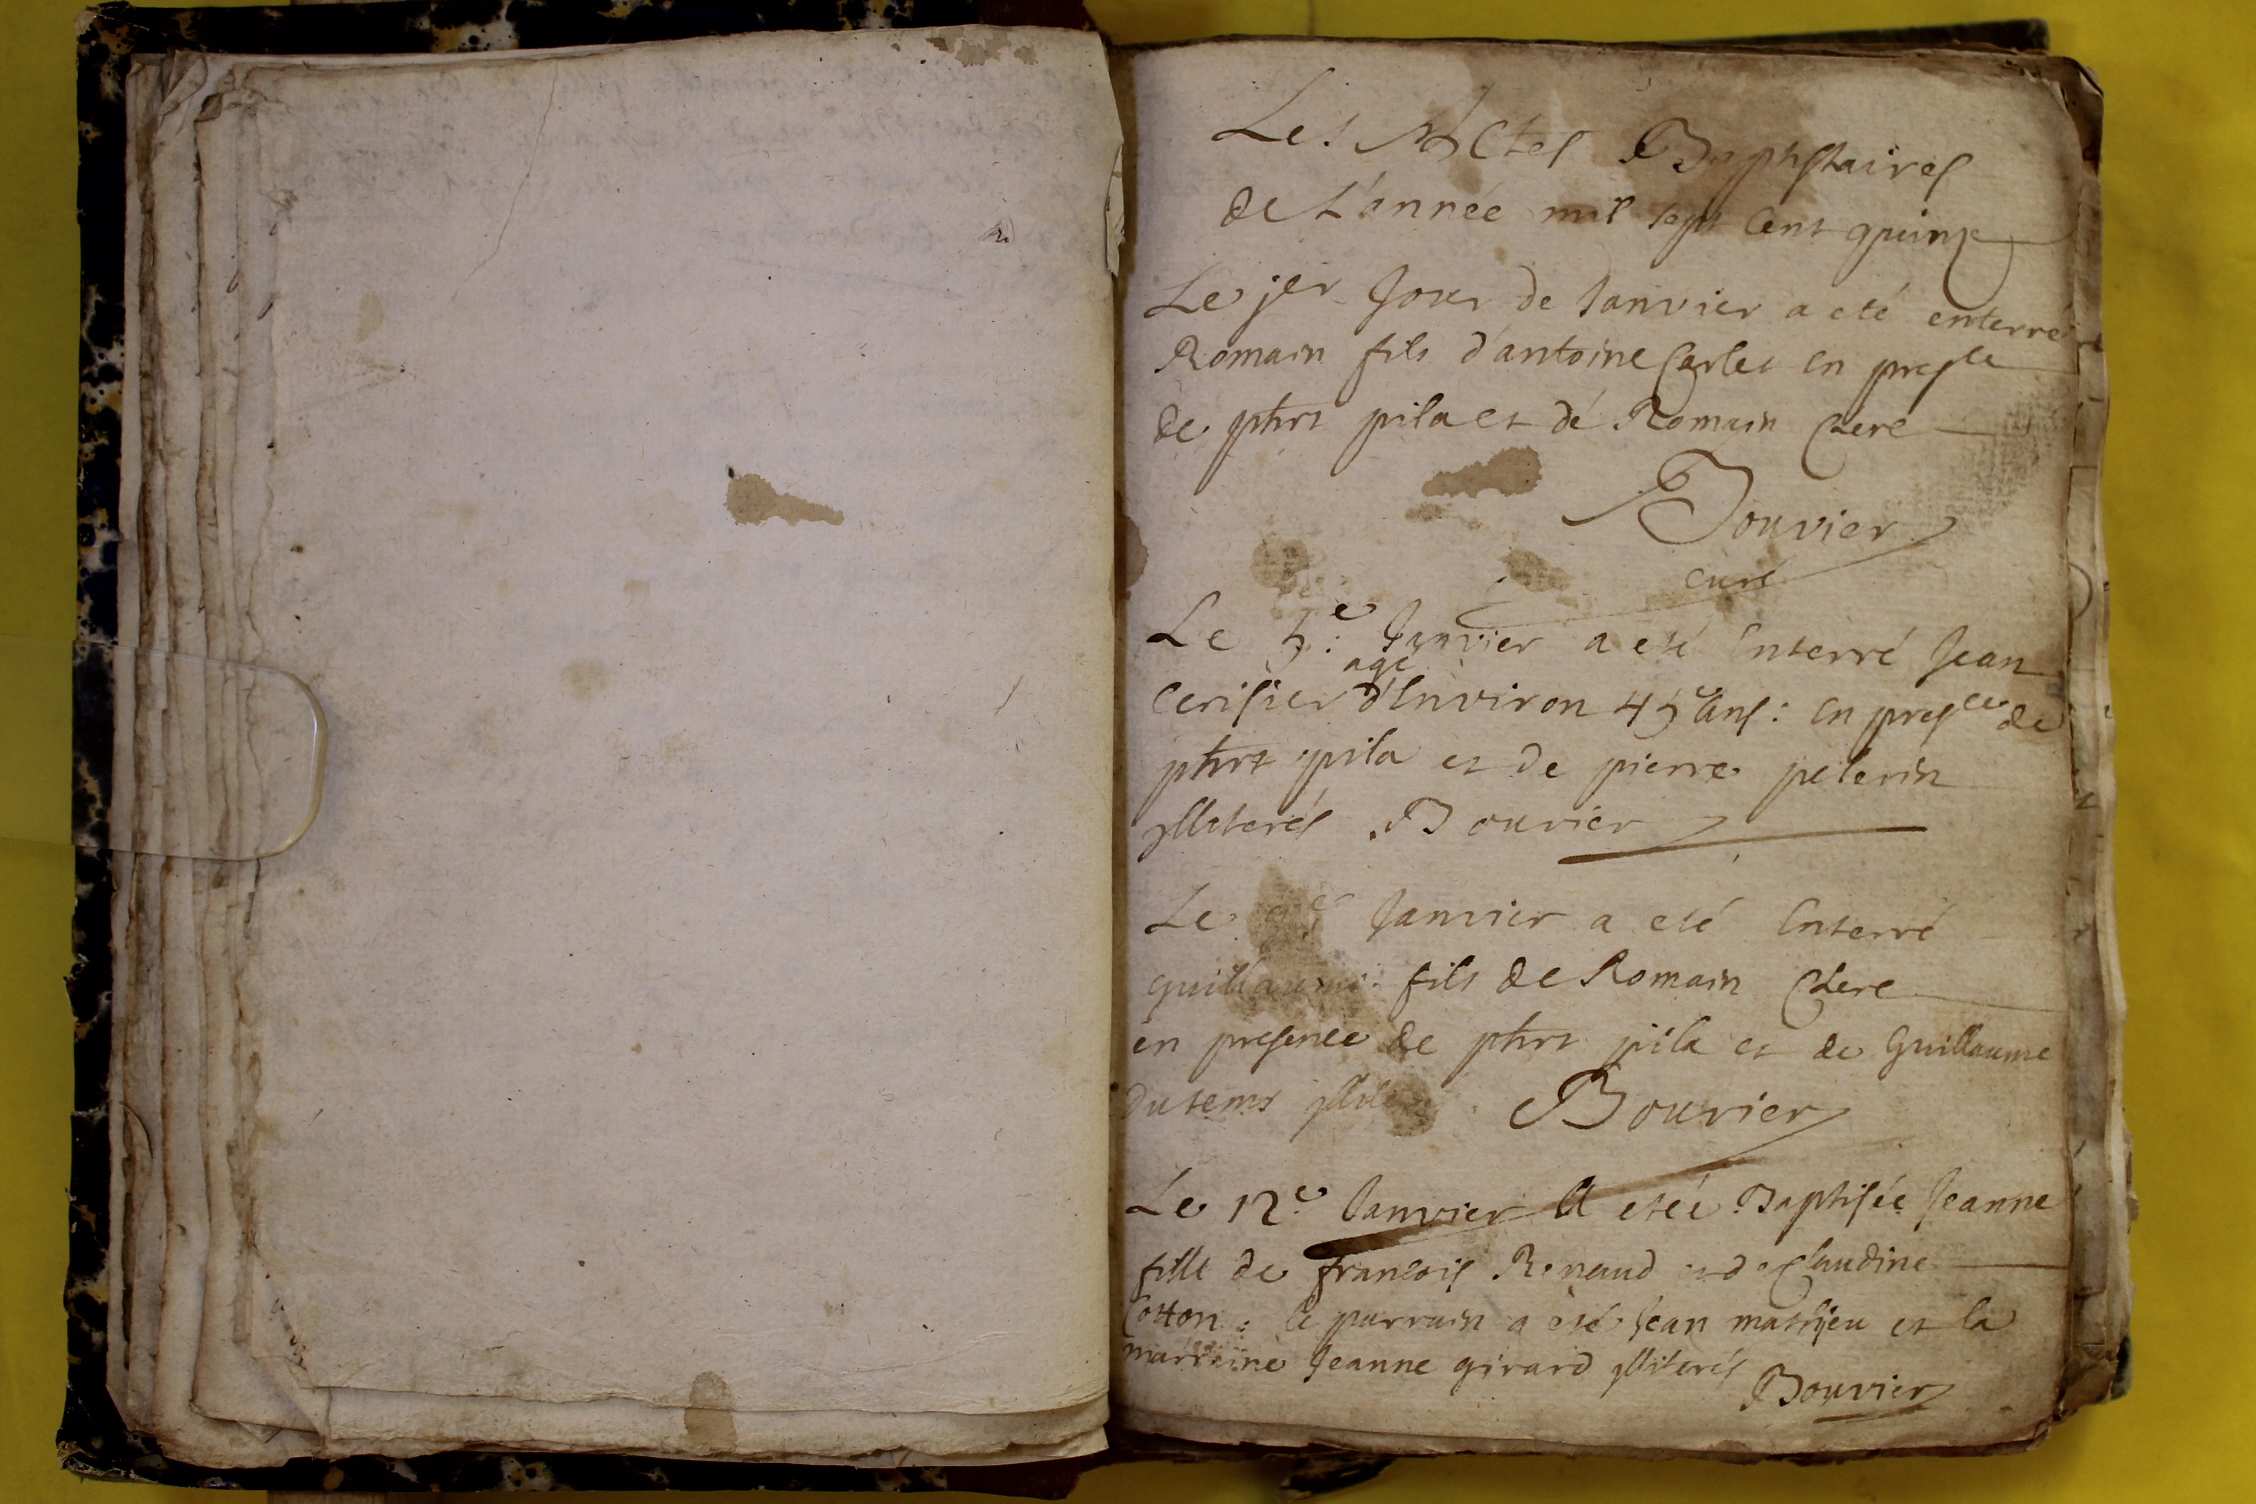 Les Actes Baptistaires
de L'année mil sept Cent quinze
Le jer Jour de Janvier a eté enterré
Romain fils d'antoine Carles en presce
de phrt pila et dé Romain Clere
Bouvier
curé
Le 5e Janvier a eté Enterré Jean
agé
Cerisier d'Environ 45 ans: En presce de
phrt pila et de pierre pelerin
yllaterés Bouvier
Le 9e Janvier a eté Enterré
guillaume fils de Romain Clere
en presence de phrt pila et de Guillaume
Dutems Bouvier
Le 12e Janvier A eteé Baptisée Jeanne
fille de francois Renaud et de Claudine
Cotton: le parrain a eté Jean mathjeu et la
marreine Jeanne girard ylliterés
Bouvier